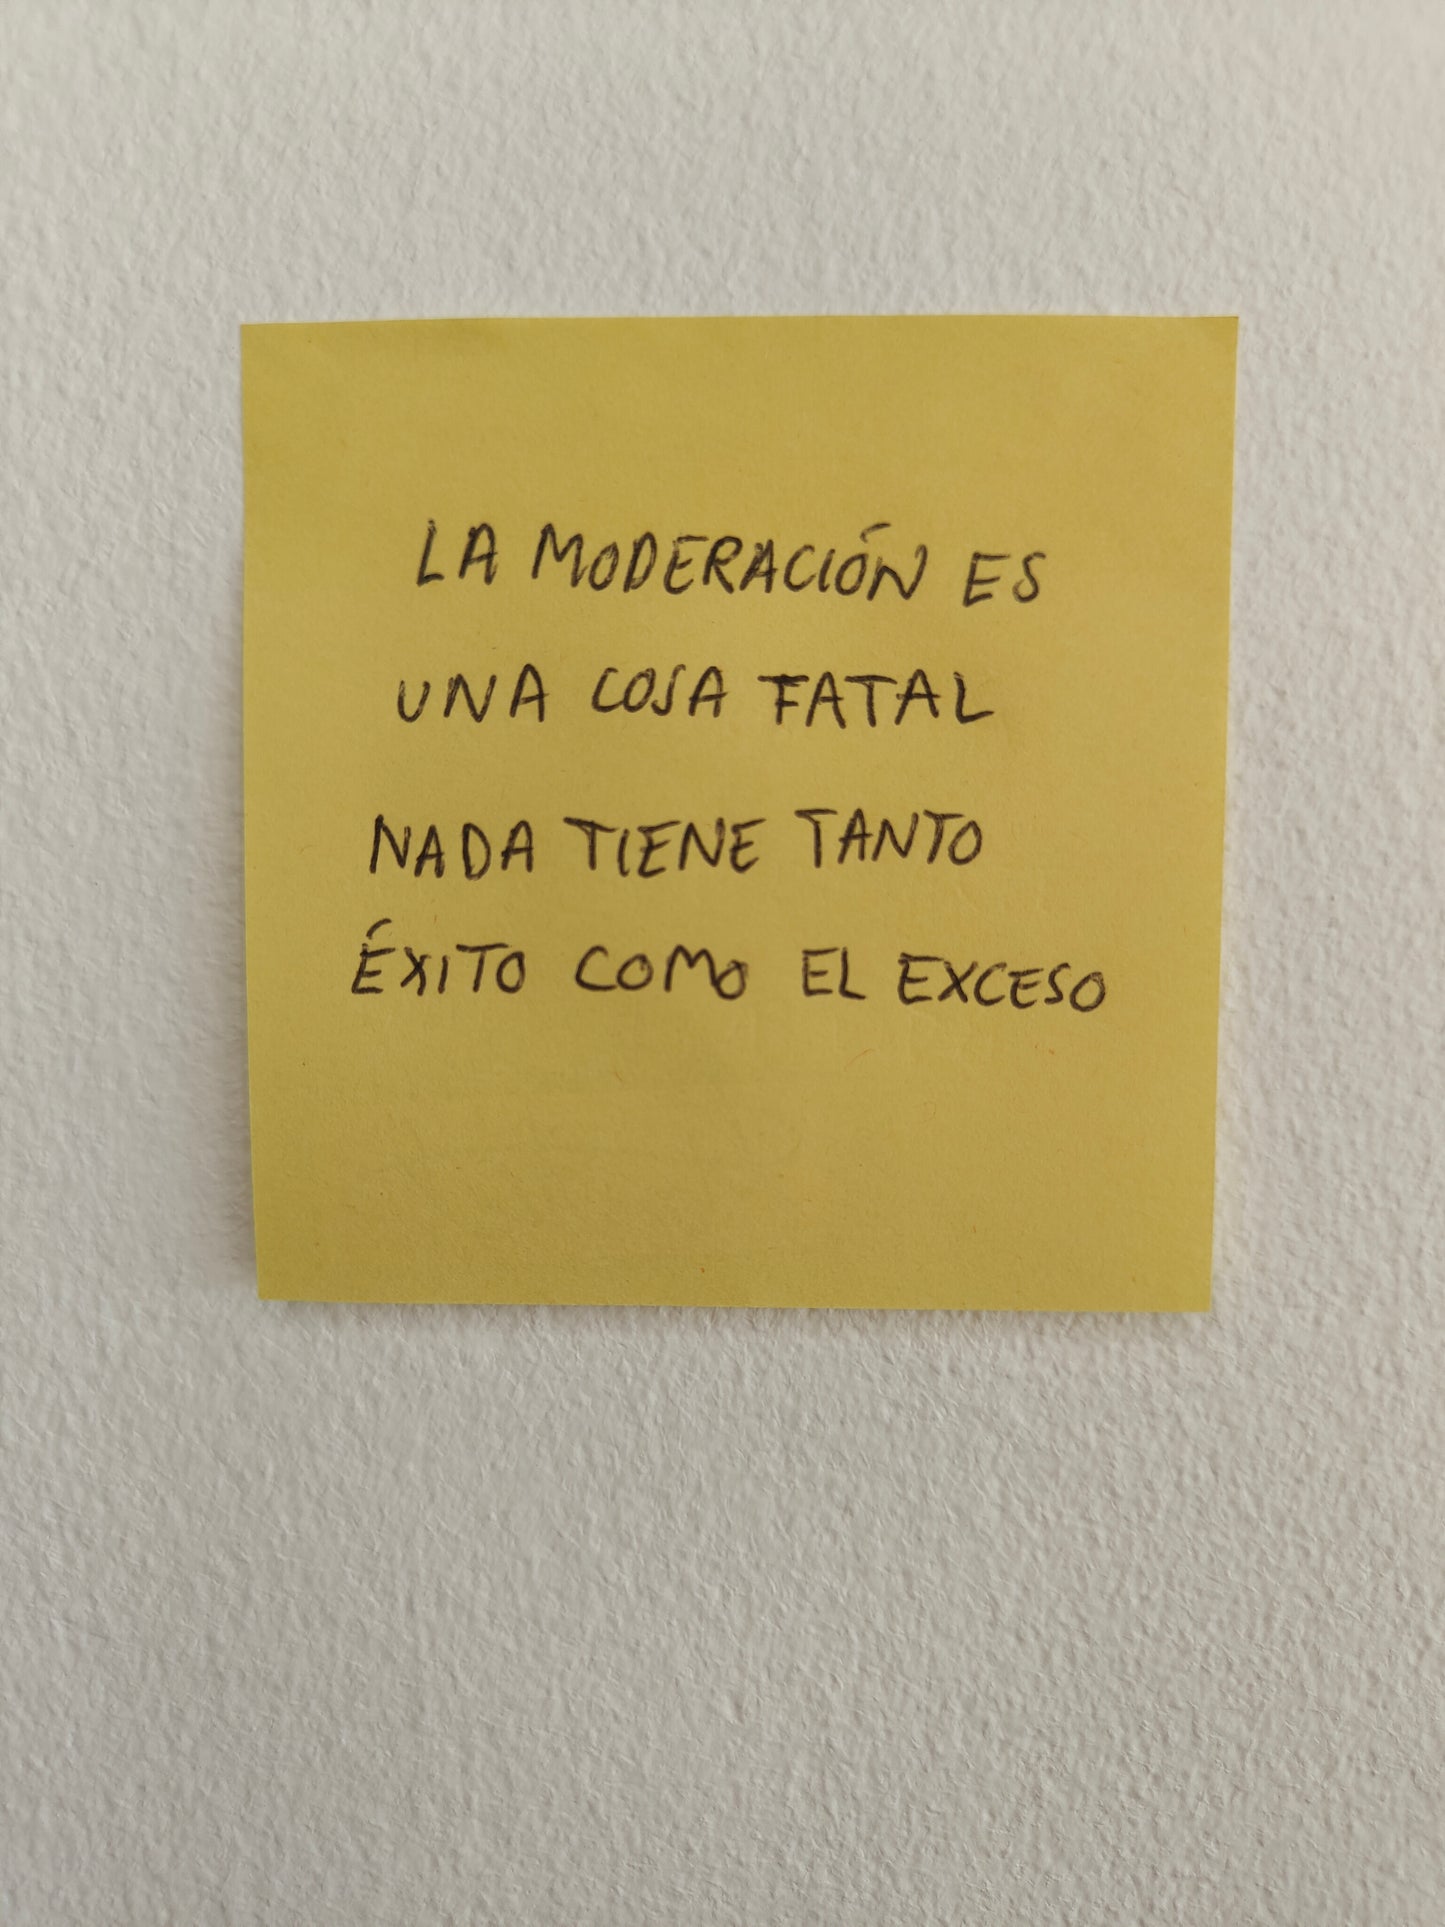 LA MODERACIÓN ES
UNA COSA FATAL
NADA TIENE TANTO
ÉXITO COMO EL EXCESO